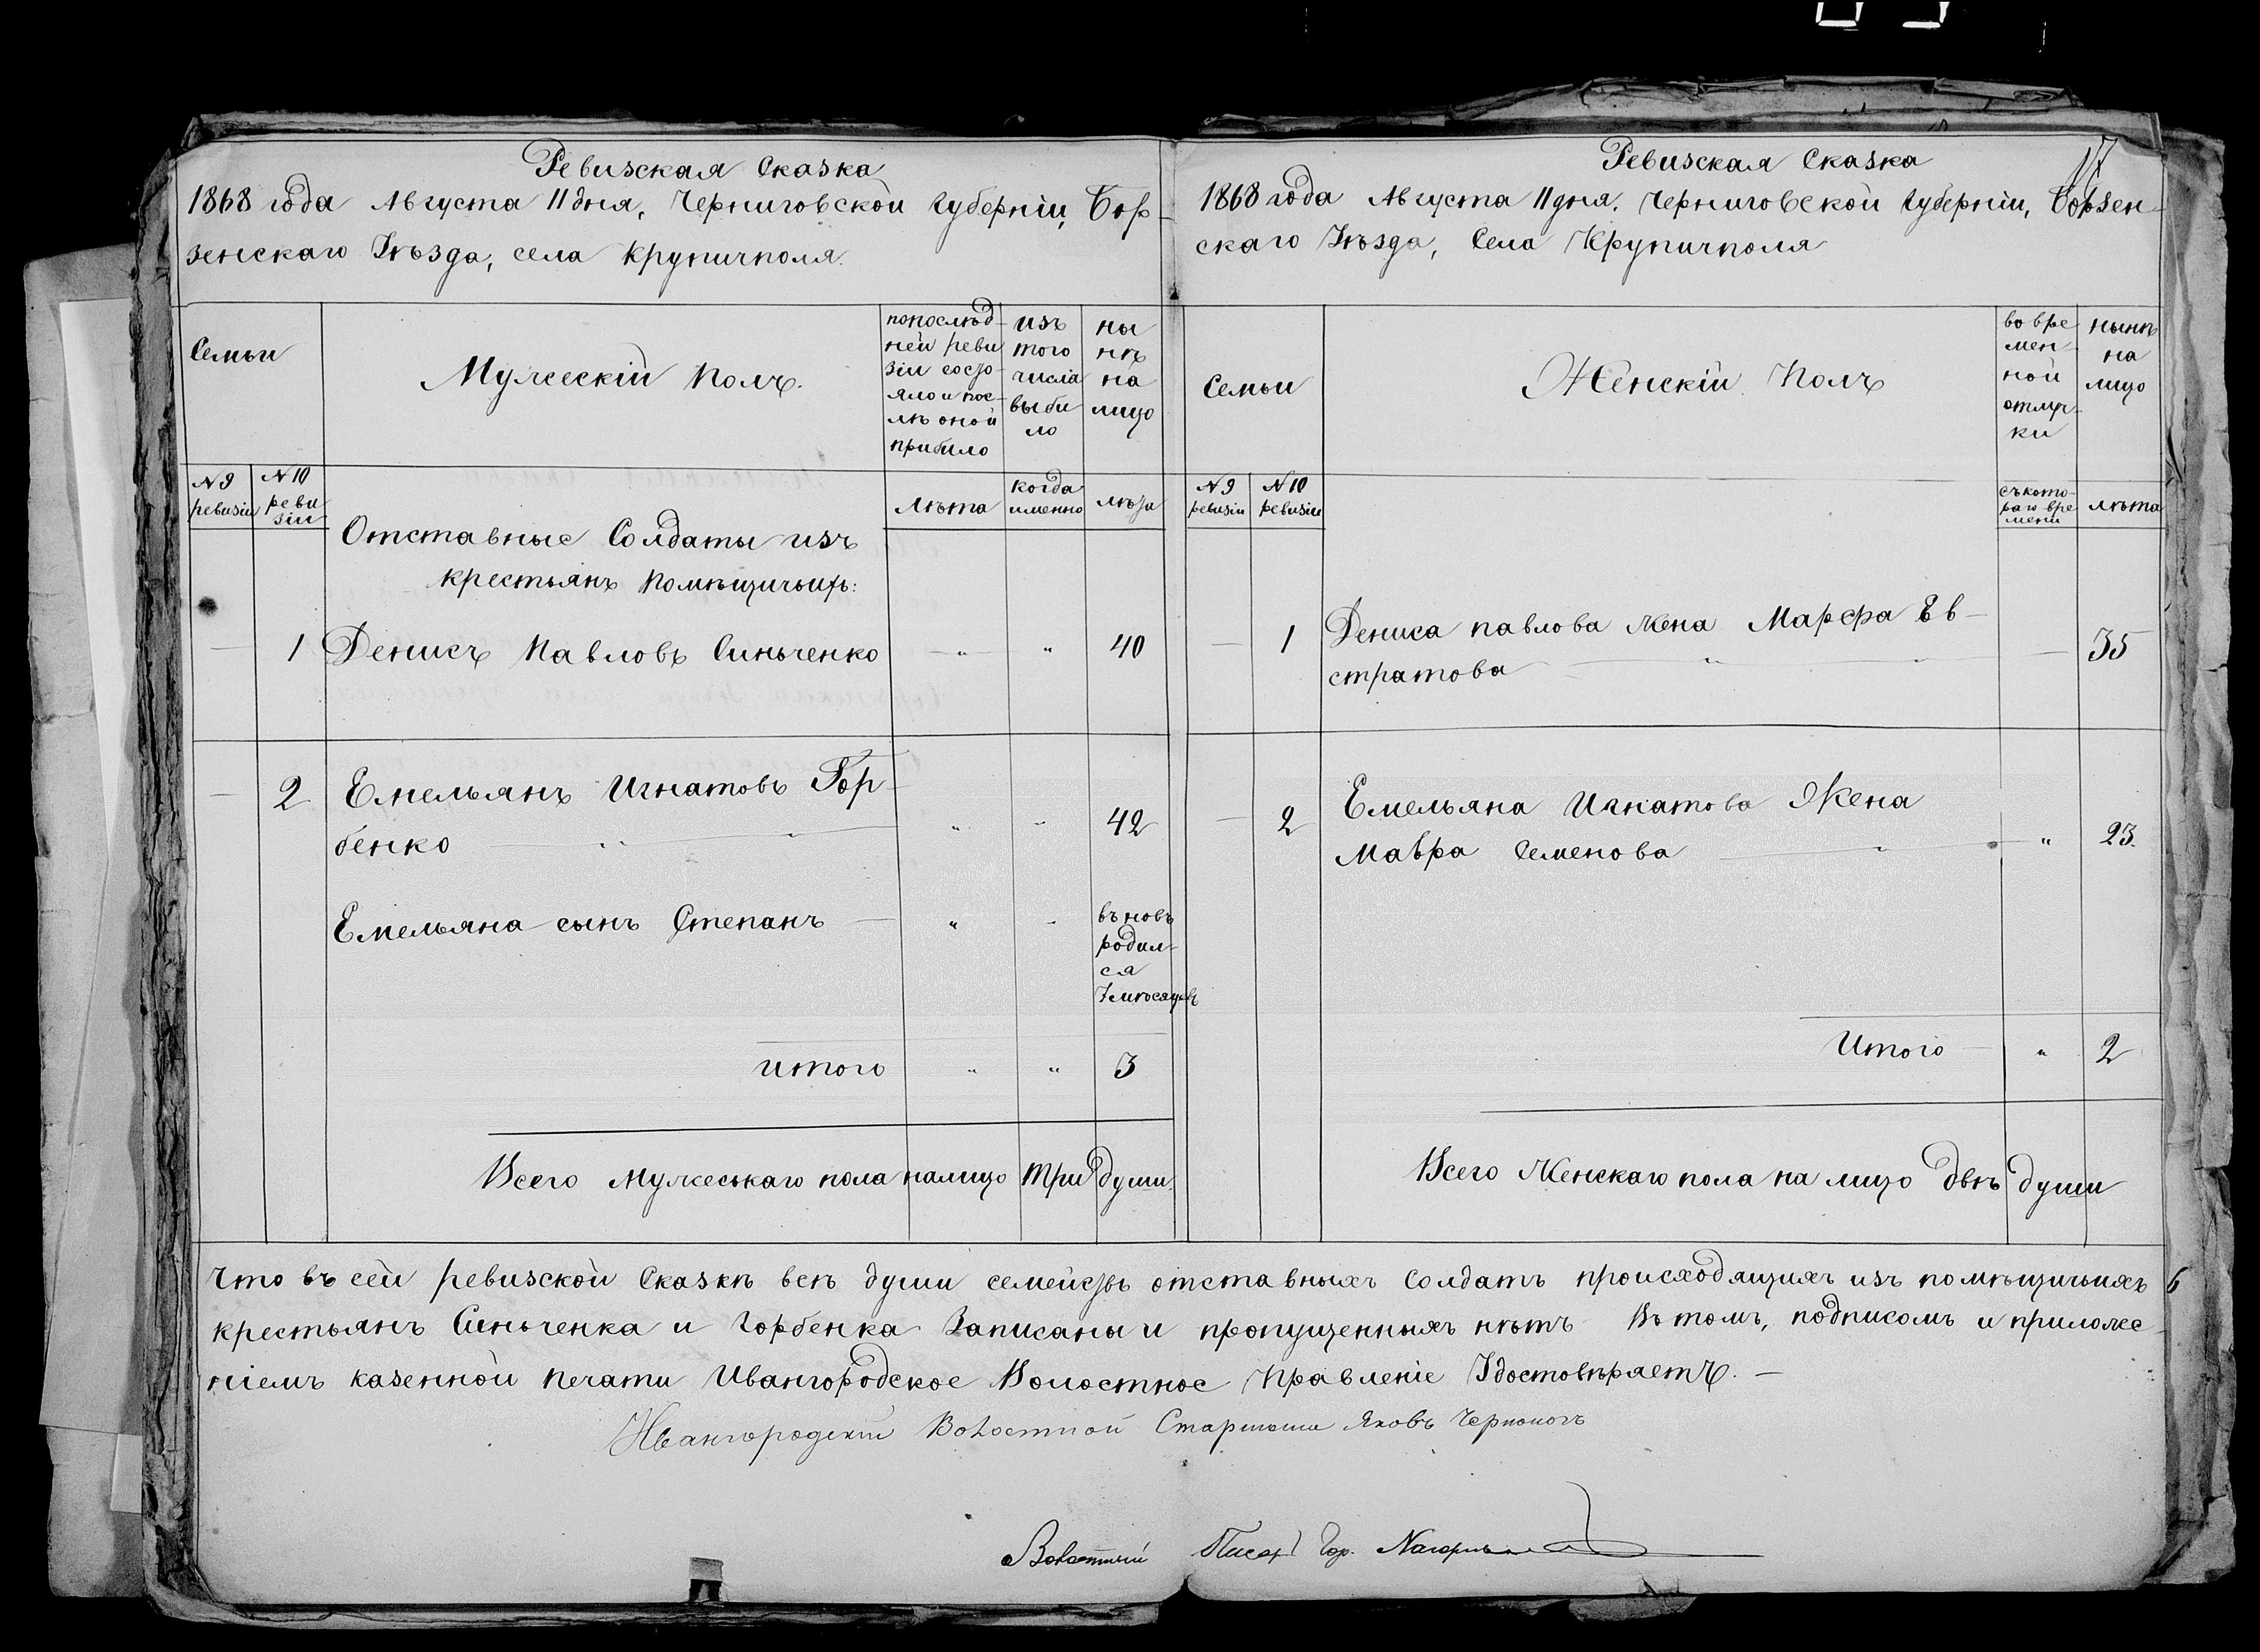 Ревизская Сказка
1868 года Августа 11 дня, Черниговской губерніи, Бор-
зенскаго Уѣзда, села Крупичполя.
Семьи
Мужескій Полъ.
по послѣд-
ней реви
зіи состо-
яло и пос-
лѣ оной
прибило
изъ
того
числа
выби
ло
ны
нѣ
на
лицо
N 9
ревизіи
N 10
реви
зіи
лѣта
когда
именно
лѣта
Отставные Солдаты изъ
крестьянъ помѣщичьихъ:
— 1 Денисъ Павловъ Синьченко — " — " 40
— 2 Емельянъ Игнатовъ Гор-
бенко " " 42
Емельяна сынъ Степанъ — " "
въ новь
родил-
ся
7 мѣсяцевъ
итого " " 3
Всего Мужеськаго пола налицо три души.
17
Ревизская Сказка
1868 года Августа 11 дня. Черниговской губерніи, Борзен-
скаго Уѣзда, Села Крупичполя
Семьи
Женскій Полъ
во вре
мен-
ной
отлуч-
ки
нынѣ
на
лицо
N 9
ревизіи
N 10
ревизіи
съ кото-
раго вре
мени
лѣта
— 1 Дениса павлова жена Марфа Ев-
стратова — " — 35
— 2 Емельяна Игнатова Жена
Мавра Семенова — " — " 23.
Итого — " 2
Всего Женскаго пола на лицо двѣ души
Что въ сей ревизской Сказкѣ всѣ души семействъ отставныхъ Солдатъ происходящихъ изъ помѣщичьихъ
крестьянъ Синьченка и Горбенка Записаны и пропущенныхъ нѣтъ Въ томъ, подписомъ и приложе-
ніемъ казенной печати Ивангородское Волостное Правленіе Удостовѣряетъ. —
Ивангородскій Волостной Старшина Яковъ Черноногъ
Волостный Писарь